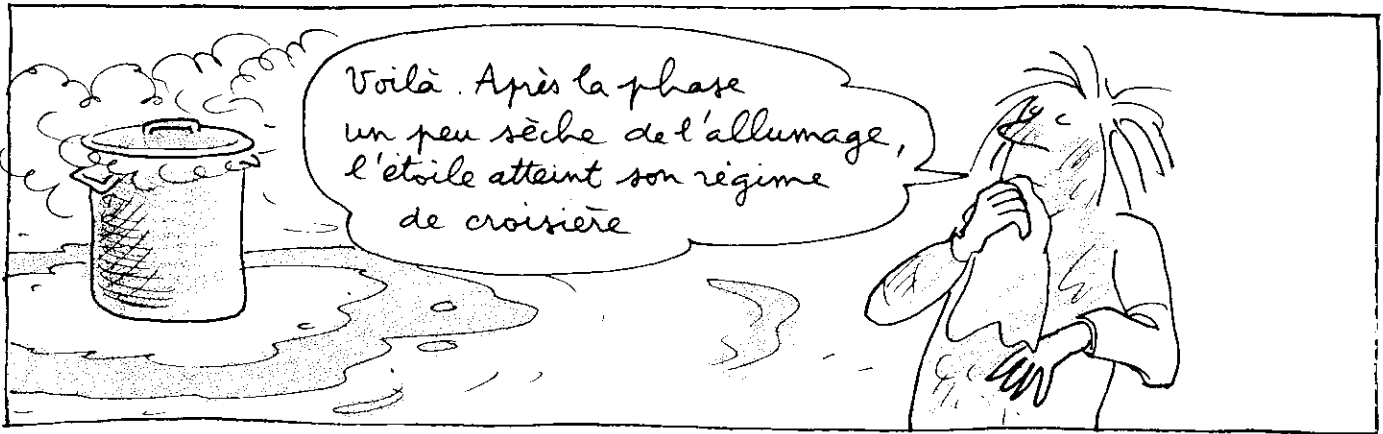 Voilà. Après la phase
un peu sèche de l'allumage,
l'étoile atteint son régime
de croisière